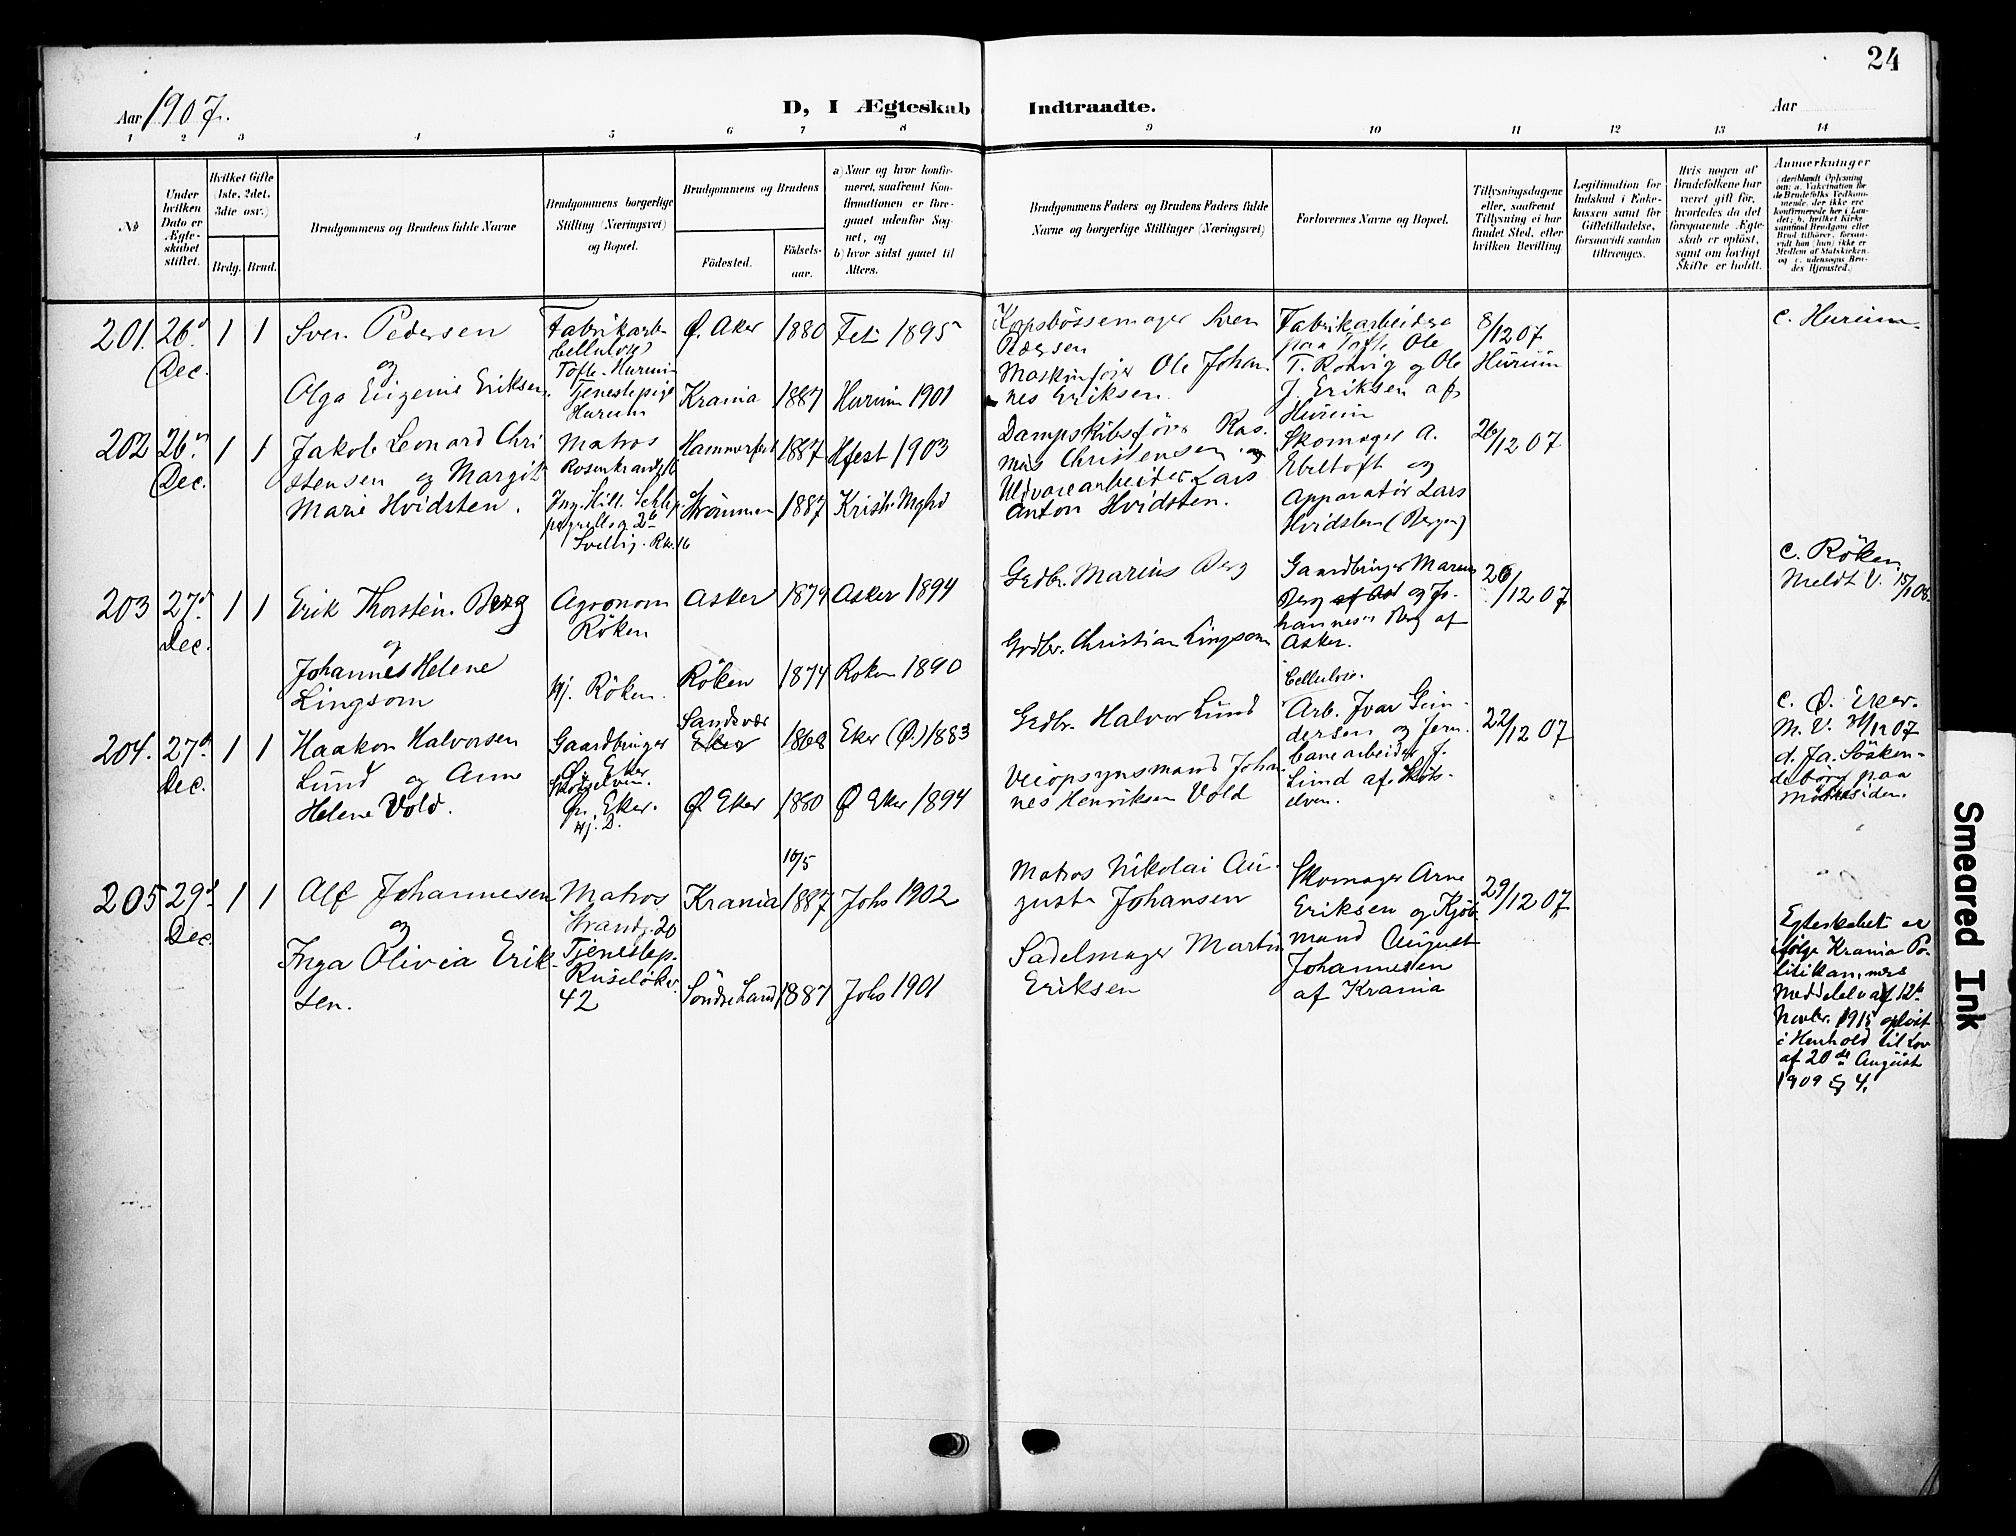 24
Aar 1907.
D, I Ægteskab Indtraadte.
Aar
1 2 3 4 5 6 7 8 9 10 11 12 13 14
No
Under hvilken Dato er Ægteskabet stiftet.
Hvilket Gifte (1ste, 2det, 3die osv.)
Brdg. Brud.
Brudgommens og Brudens fulde Navne
Brudgommens borgerlige Stilling (Næringsvei) og Bopæl.
Brudgommens og Brudens
Fødested.
Fødselsaar.
a) Naar og hvor konfirmeret, saafremt Konfirmationen er foregaaet udenfor Sognet, og
b) hvor sidst gaaet til Alters.
Brudgommens Faders og Brudens Faders fulde Navne og borgerlige Stillinger (Næringsvei)
Forlovernes Navne og Bopæl.
Tillysningsdagene eller, saafremt Tillysning ei har fundet Sted, efter hvilken Bevilling.
Legitimation for Indskud i Enkekassen samt for Giftetilladelse, forsaavidt saadan tiltrænges.
Hvis nogen af Brudefolkene har været gift før, hvorledes da det foregaaende Ægteskab er opløst, samt om lovligt Skifte er holdt.
Anmerkninger
201. 26d Dec. 1 1
Sven Pedersen
og
Olga Eugenie Eriksen.
Fabrikarb.
Cellulose
Tofte. Hurum
Tjenestepige
Hurum
Ø. Aker 1880 Fet 1895
Krania 1887 Hurum 1901
Kopsbössemager Sven
Pedersen
Maskinfører Ole Johan
nes Eriksen.
Fabrikarbeidere
paa Tofte Ole
T. Rodvig og Ole
J. Eriksen af
Hurum
8/12 07
Hurum
c. Hurum.
202 26d Dec. 1 1
Jakob Leonard Chri
stensen og Margit
Marie Hvidsten.
Matros
Rosenkrandzg
Hammerfest 1887 Hfest 1903
Strömmen 1887 Krist. Mghd
Dampskibsfører Ras
mus Christensen og
Uldvarearbeider Lars
Anton Hvidsten.
Skomager A.
Ebeltoft og
Apparatör Lars
Hvidsten (Bergen)
26/12 07
203 27d Dec. 1 1
Erik Thorsten Berg
og
Johannes Helene
Lingsom
Agronom
Röken
Hj. Röken.
Asker 1879 Asker 1894
Röken 1874 Roken 1890
Grdbr. Marius Berg
Grdbr. Christian Lingsom
Gaardbruger Marius
Berg af Ast og Jo-
hannes Berg af
Asker.
26/12 07
c. Röken
Meldt V. 15/1 08.
204. 27d Dec. 1 1
Haakon Halvorsen
Lund og Anne
Helene Vold.
Gaardbruger
Ø. Eker
Skotselven.
Øn. Eker.
Hj. D.
Sandsvær
Eker 1868 Eker (Ø.) 1883
Ø Eker 1880 Ø Eker 1894
Grdbr. Halvor Lund
Veiopsynsmand Johan
nes Henriksen Vold
Cellulose.
Arb. Ivar Gun-
dersen og Jern-
banearbeider J.
Lund af Skots-
elven.
22/12 07
c. Ø. Eker.
M. V. 31/12 07
205 29d Dec. 1 1
Alf Johannesen
og
Inga Olivia Erik-
sen.
Matros
Strandg. 20
Tjenestep.
Ruselökv.
42
16/5
Krania 1887 Johs 1902
Söndre Land 1887 Johs 1901
Matros Nikolai Au-
gust Johansen
Sadelmager Martin
Eriksen
Skomager Arne
Eriksen og Kjöb
mand August
Johannesen
af Krania
29/12 07
Egteskabet er
ifølge Krania Po-
litikammers
Meddelelse af 12te
Novbr. 1915 oplöst
i Henhold til Lov
af 20de August
1909 § 4.
Smeared Ink